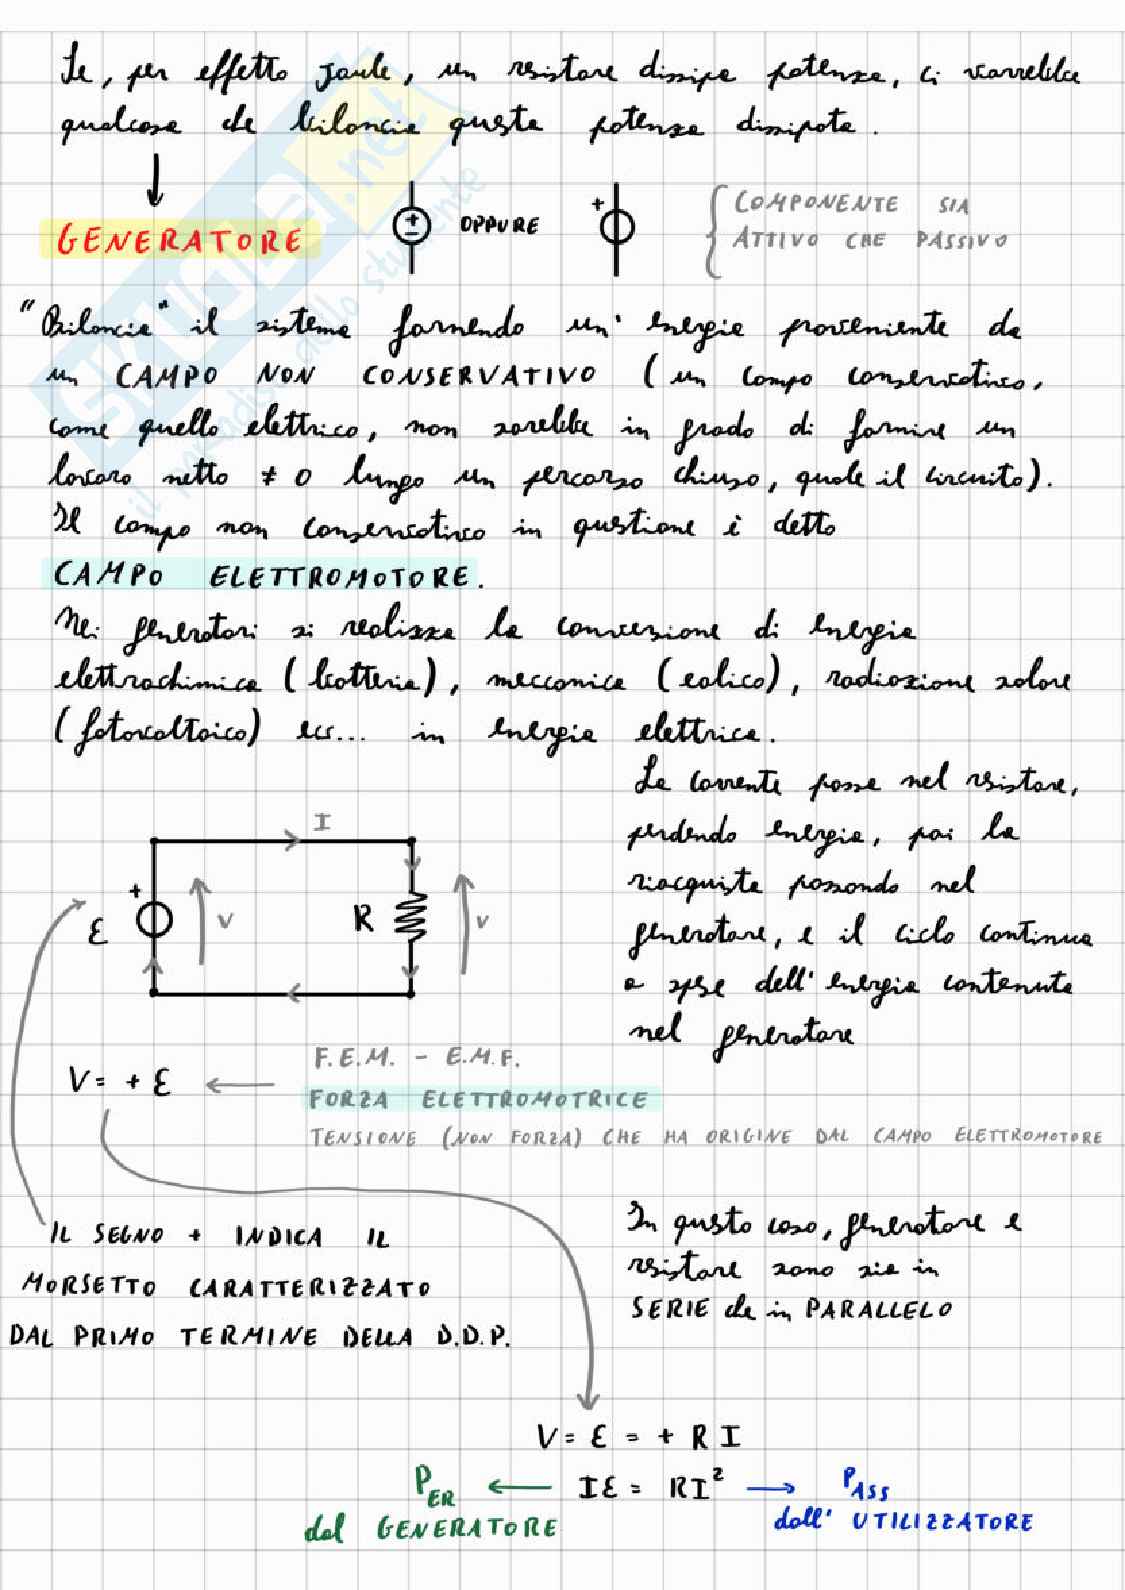 Se, per effetto Joule, un resistore dissipa potenza, ci vorrebbe
qualcosa che bilancia questa potenza dissipata.
GENERATORE
+
-
OPPURE
+
COMPONENTE SIA
ATTIVO CHE PASSIVO
"Bilancia" il sistema fornendo un' energia proveniente da
un CAMPO NON CONSERVATIVO (un campo conservativo,
come quello elettrico, non sarebbe in grado di fornire un
lavoro netto ≠ 0 lungo un percorso chiuso, quale il circuito).
Il campo non conservativo in questione è detto
CAMPO ELETTROMOTORE.
Nei generatori si realizza la conversione di energia
elettrochimica (batteria), meccanica (eolico), radiazione solare
(fotovoltaico) ecc... in energia elettrica.
La corrente passa nel resistore,
perdendo energia, poi la
riacquista passando nel
generatore, e il ciclo continua
a spese dell' energia contenuta
nel generatore
I
+
ε
V
R
V
V = + ε
F.E.M. - E.M.F.
FORZA ELETTROMOTRICE
TENSIONE (NON FORZA) CHE HA ORIGINE DAL CAMPO ELETTROMOTORE
IL SEGNO + INDICA IL
MORSETTO CARATTERIZZATO
DAL PRIMO TERMINE DELLA D.D.P.
In questo caso, generatore e
resistore sono sia in
SERIE che in PARALLELO
V = ε = + R I
P_ER ← Iε = RI² → P_ASS
dal GENERATORE
dall' UTILIZZATORE
SKUOLA.net
il paradiso dello studente